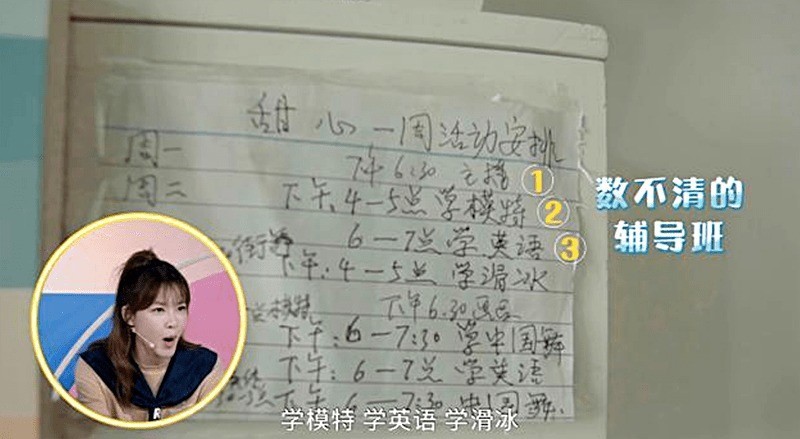 甜心一周活动安排
周一 下午6:30 主播 ①
周二 下午:4—5点学模特 ②
6—7点学英语 ③
数不清的
辅导班
街舞 下午:4—5点 学滑冰
学模特 下午6:30画画
下午:6—7:30 学中国舞
下午:6—7点 学英语
下午:6—7:30 中国舞
学模特 学英语 学滑冰